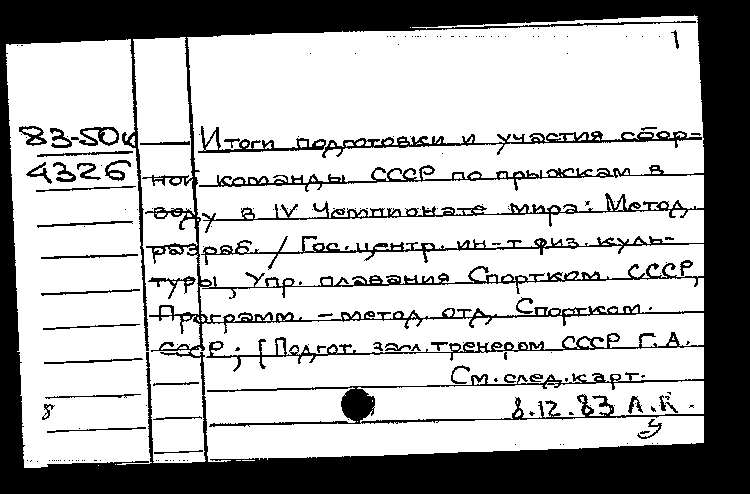 1
83-50к
4326
Итоги подготовки и участия сбор=
ной команды СССР по прыжкам в
воду в IV Чемпионате мира: Метод.
разраб. / Гос. центр. ин-т физ. куль-
туры, Упр. плавания Спортком. СССР,
Программ.-метод. отд. Спортком.
СССР; [Подгот. засл. тренером СССР Г.А.
См. след. карт.
8
8.12.83 А.К.